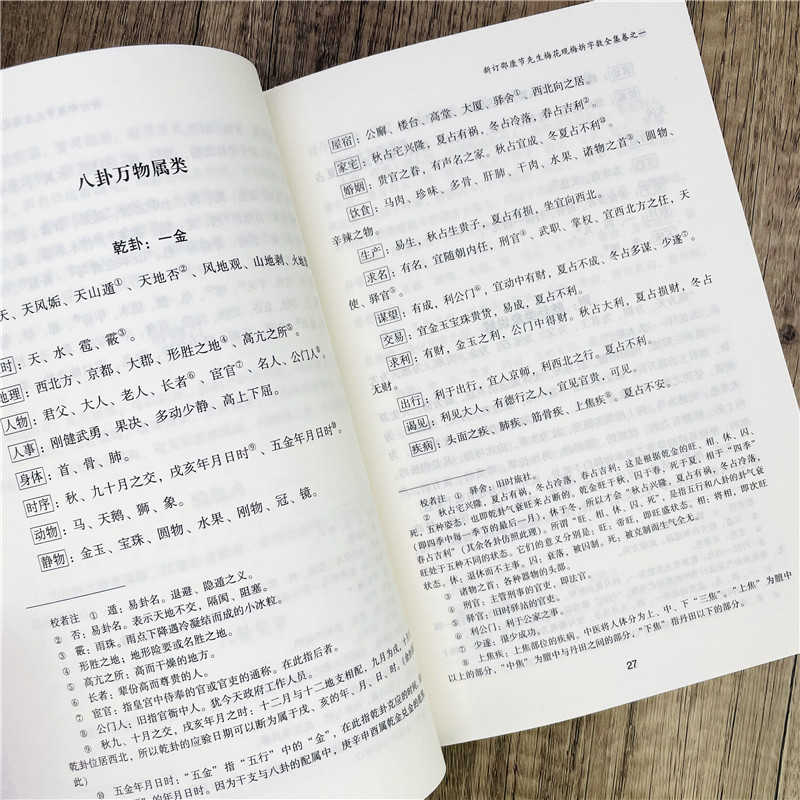 八卦万物属类
乾卦：一金
天、天风姤、天山遁①、天地否②、风地观、山地剥、火地
时：天、水、雹、霰③。
地理：西北方、京都、大郡、形胜之地④、高亢之所⑤。
人物：君父、大人、老人、长者⑥、宦官⑦、名人、公门人⑧。
人事：刚健武勇、果决、多动少静、高上下屈。
身体：首、骨、肺。
时序：秋、九十月之交，戌亥年月日时⑨、五金年月日时⑩。
动物：马、天鹅、狮、象。
静物：金玉、宝珠、圆物、水果、刚物、冠、镜。
校者注 ① 遁：易卦名。退避、隐遁之义。
② 否：易卦名。表示天地不交，隔阂、阻塞。
③ 霰：雨珠。雨点下降遇冷凝结而成的小冰粒。
④ 形胜之地：地形险要或名胜之地。
⑤ 高亢之所：高而干燥的地方。
⑥ 长者：辈份高而尊贵的人。
⑦ 宦官：指皇宫中侍奉的官或官吏的通称。在此指后者。
⑧ 公门人：旧指官衙中人。犹今天政府工作人员。
⑨ 秋九、十月之交，戌亥年月之时：十二月与十二地支相配，九月为戌，十月
乾卦位居西北，所以乾卦的应验日期可以断为属于戌、亥的年、月、日、时，
此）
⑩ 五金年月日时：“五金”指“五行”中的“金”，在此指乾卦克应的时间，
年月日时。因为干支与八卦的配属中，庚辛申酉属乾金兑金的
新订邵康节先生梅花观梅拆字数全集卷之一
屋宿：公廨、楼台、高堂、大厦、驿舍①、西北向之居。
家宅：秋占宅兴隆，夏占有祸，冬占冷落，春占吉利②。
婚姻：贵官之眷，有声名之家。秋占宜成、冬夏占不利。
饮食：马肉、珍味、多骨、肝肺、干肉、水果、诸物之首③、圆物、
辛辣之物。
生产：易生，秋占生贵子，夏占有损，坐宜向西北。
求名：有名，宜随朝内任，刑官④、武职、掌权、宜西北方之任，天
使、驿官⑤。
谋望：有成，利公门⑥，宜动中有财，夏占不成、冬占多谋、少遂⑦。
交易：宜金玉宝珠贵货，易成，夏占不利。
求利：有财，金玉之利，公门中得财。秋占大利，夏占损财，冬占
无财。
出行：利于出行，宜入京师，利西北之行。夏占不利。
谒见：利见大人、有德行之人，宜见官贵，可见。
疾病：头面之疾、肺疾、筋骨疾、上焦疾⑧。夏占不安。
校者注 ① 驿舍：旧时旅社。
② 秋占宅兴隆，夏占有祸，冬占冷落，春占吉利：这是根据乾金的旺、相、休、囚、
死，五种姿态，也即乾卦气衰旺来占断的。乾金旺于秋，囚于春，死于夏，相于“四季”
（即四季中每一季节的最后一月），休于冬，所以才会“秋占兴隆，夏占有祸，冬占冷落，
春占吉利”（其余各卦仿照此理）。所谓“旺、相、休、囚、死”，是指五行和八卦的卦气衰
旺处于五种不同的状态。它们的意义分别是：旺：帝旺，即旺盛状态。相：将相，即次旺
状态。休：退休而不主事。囚：衰落，被囚制。死：被克制而生气全无。
③ 诸物之首：各种器物的头部。
④ 刑官：主管刑事的官吏，即法官。
⑤ 驿官：旧时驿站的官吏。
⑥ 利公门：利于公家之事。
⑦ 少遂：很少成功。
⑧ 上焦疾：上焦部位的疾病，中医将人体分为上、中、下“三焦”。“上焦”为膻中
以上的部分，“中焦”为膻中与丹田之间的部分，“下焦”指丹田以下的部分。
27